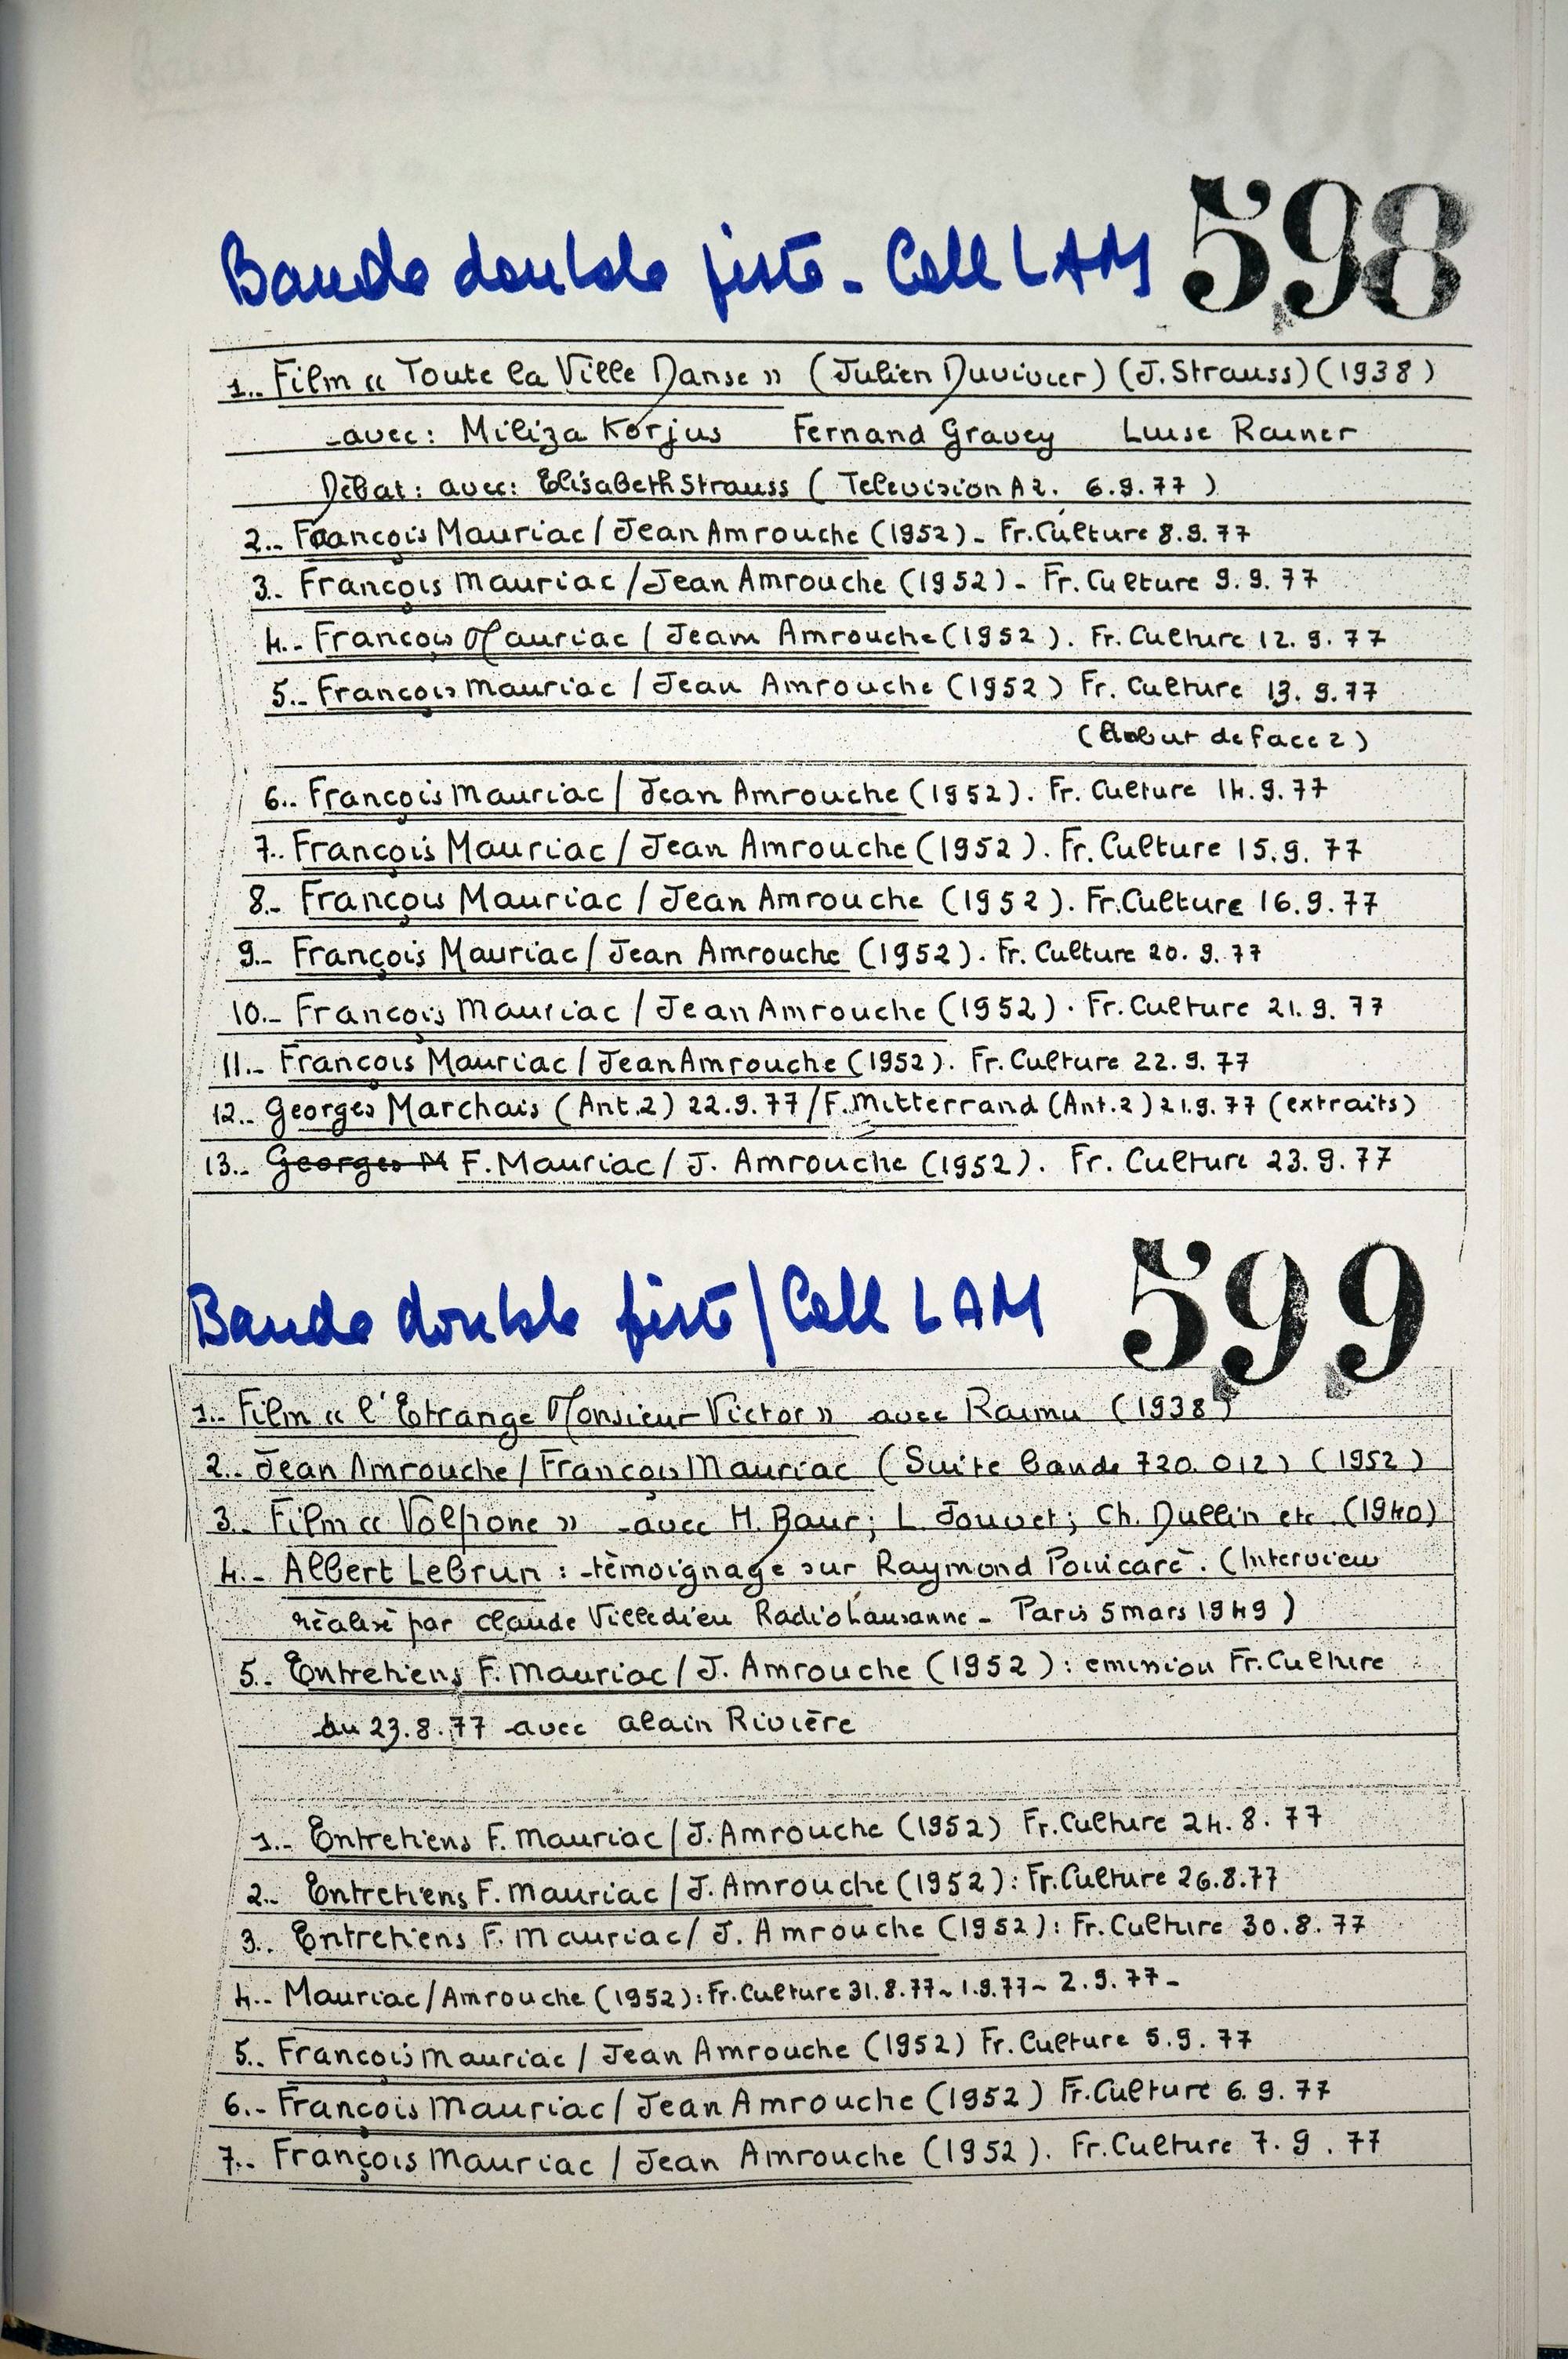 Bande double piste - Coll LAM 598
1.. Film « Toute la Ville Danse » (Julien Duvivier) (J. Strauss) (1938)
avec: Miliza Korjus Fernand Gravey Luise Rainer
Débat: avec: Elisabeth Strauss (Television A2. 6.9.77)
2.. François Mauriac / Jean Amrouche (1952) - Fr. Culture 8.9.77
3.. François Mauriac / Jean Amrouche (1952) - Fr. Culture 9.9.77
4.- François Mauriac / Jean Amrouche (1952). Fr. Culture 12.9.77
5.- François Mauriac / Jean Amrouche (1952) Fr. Culture 13.9.77
(Début de face 2)
6.. François Mauriac / Jean Amrouche (1952). Fr. Culture 14.9.77
7.. François Mauriac / Jean Amrouche (1952). Fr. Culture 15.9.77
8.- François Mauriac / Jean Amrouche (1952). Fr. Culture 16.9.77
9.- François Mauriac / Jean Amrouche (1952). Fr. Culture 20.9.77
10.- François Mauriac / Jean Amrouche (1952). Fr. Culture 21.9.77
11.- François Mauriac / Jean Amrouche (1952). Fr. Culture 22.9.77
12.. Georges Marchais (Ant.2) 22.9.77 / F. Mitterrand (Ant.2) 21.9.77 (extraits)
13.. Georges M F. Mauriac / J. Amrouche (1952). Fr. Culture 23.9.77
Bande double piste / Coll LAM 599
1.. Film « l'Etrange Monsieur Victor » avec Raimu (1938)
2.. Jean Amrouche / François Mauriac (Suite bande 720.012) (1952)
3.. Film « Volpone » avec H. Baur; L. Jouvet; Ch. Dullin etc. (1940)
4.- Albert Lebrun : témoignage sur Raymond Poincaré. (Interview
réalisé par Claude Villedieu Radio Lausanne - Paris 5 mars 1949)
5.. Entretiens F. Mauriac / J. Amrouche (1952) : emission Fr. Culture
du 23.8.77 avec alain Rivière
1.- Entretiens F. Mauriac / J. Amrouche (1952) Fr. Culture 24.8.77
2.. Entretiens F. Mauriac / J. Amrouche (1952) : Fr. Culture 26.8.77
3.. Entretiens F. Mauriac / J. Amrouche (1952) : Fr. Culture 30.8.77
4.. Mauriac / Amrouche (1952) : Fr. Culture 31.8.77 - 1.9.77 - 2.9.77 -
5.. François Mauriac / Jean Amrouche (1952) Fr. Culture 5.9.77
6.- François Mauriac / Jean Amrouche (1952) Fr. Culture 6.9.77
7.. François Mauriac / Jean Amrouche (1952). Fr. Culture 7.9.77